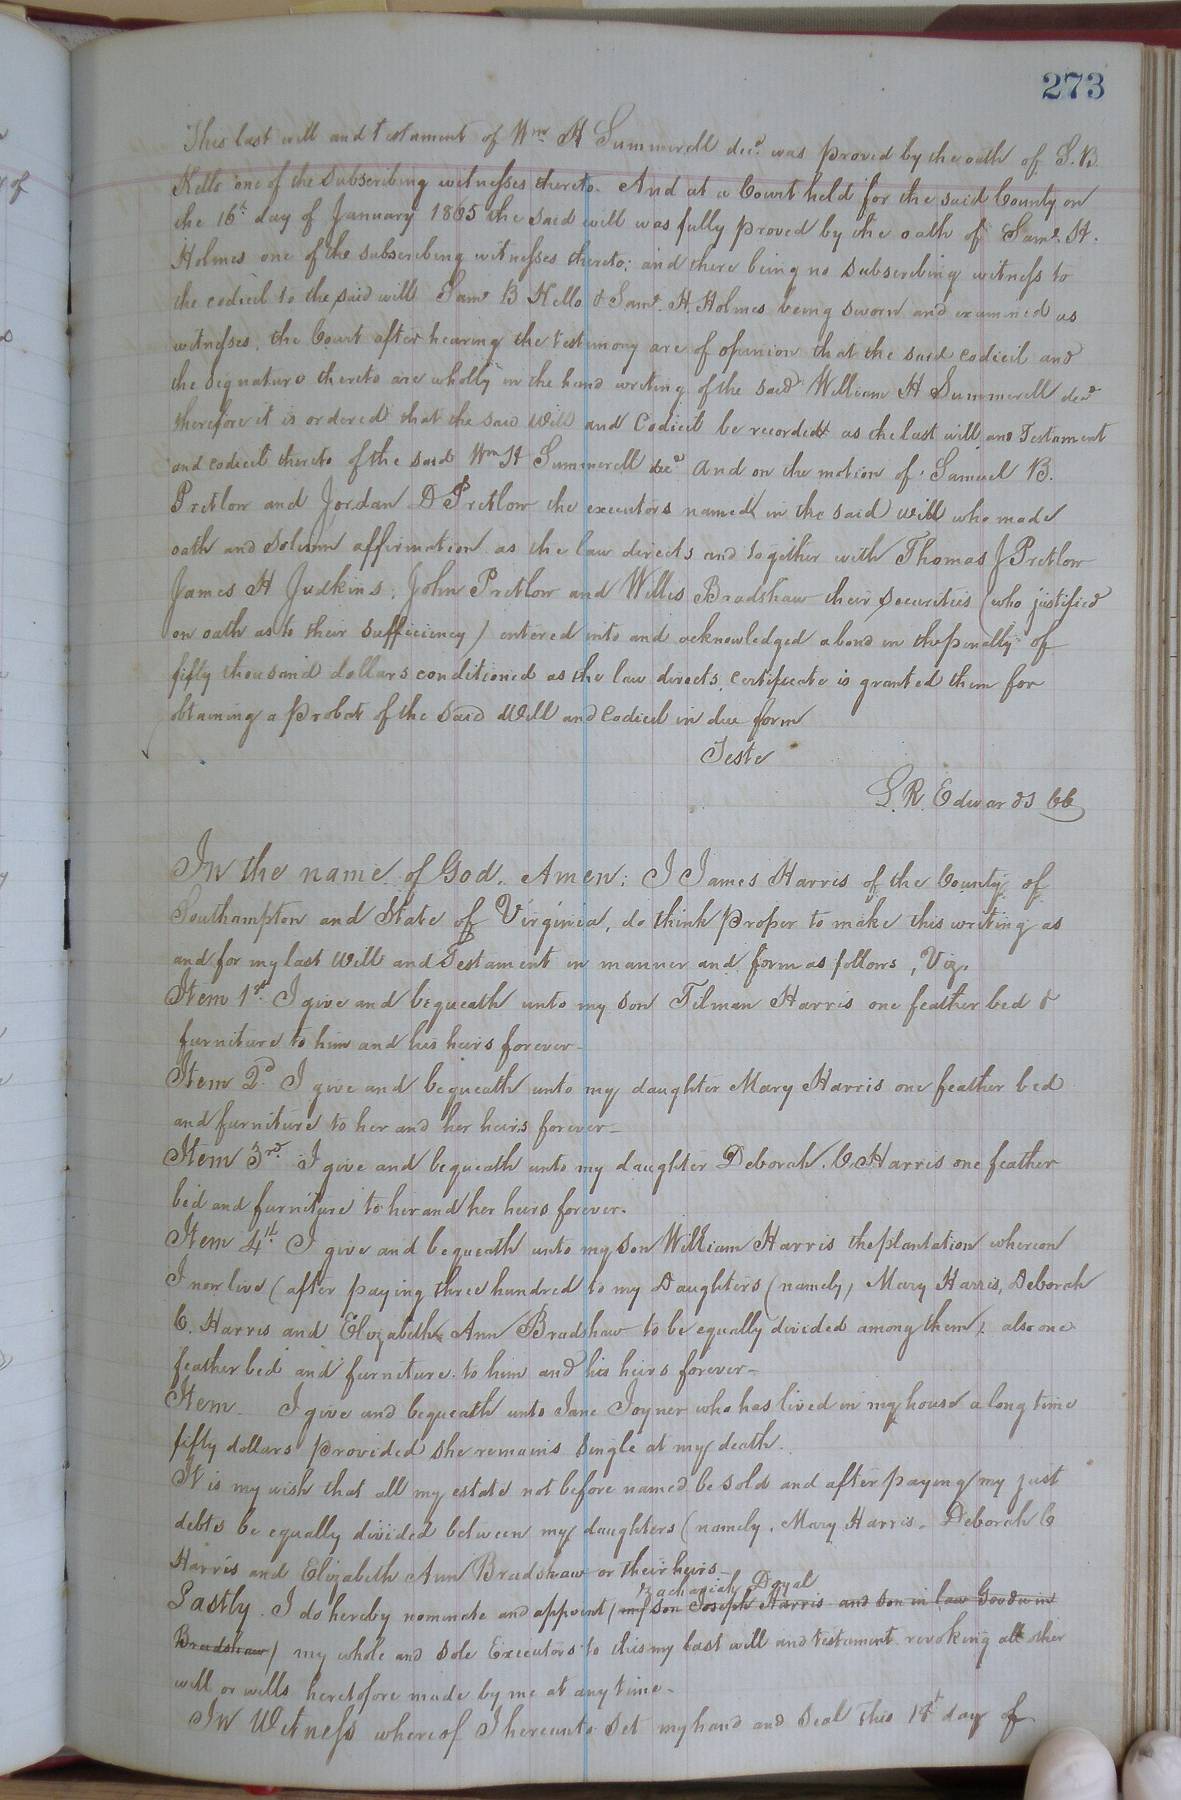 273
This last will and testament of Wm H Summerell decd was proved by the oath of S. B.
Kello one of the Subscribing witnesses thereto. And at a Court held for the said County on
the 16th day of January 1865 the said will was fully proved by the oath of Saml. H.
Holmes one of the subscribing witnesses thereto; and there being no subscribing witness to
the codicil to the said will Saml B Kello & Saml. H. Holmes being sworn and examined as
witnesses, the Court after hearing the testimony are of opinion that the said codicil and
the signature thereto are wholly in the hand writing of the said William H Summerell decd
therefore it is ordered that the said Will and Codicil be recorded as the last will and Testament
and codicil thereto of the said Wm H Summerell decd And on the motion of Samuel B.
Pretlow and Jordan D Pretlow the executors named in the said will who made
oath and solemn affirmation as the law directs and together with Thomas J Pretlow
James H Judkins, John Pretlow and Willis Bradshaw their securities (who justified
on oath as to their sufficiency) entered into and acknowledged a bond in the penalty of
fifty thousand dollars conditioned as the law directs, certificate is granted them for
obtaining a probat of the said Will and Codicil in due form
Teste
L. R. Edwards CC
In the name of God. Amen: I James Harris of the County of
Southampton and State of Virginia, do think proper to make this writing as
and for my last Will and Testament in manner and form as follows, Viz.
Item 1st. I give and bequeath unto my son Tilman Harris one feather bed &
furniture to him and his heirs forever-
Item 2d I give and bequeath unto my daughter Mary Harris one feather bed
and furniture to her and her heirs forever-
Item 3rd. I give and bequeath unto my daughter Deborah. C. Harris one feather
bed and furniture to her and her heirs forever.
Item 4th. I give and bequeath unto my son William Harris the plantation whereon
I now live (after paying three hundred to my Daughters (namely, Mary Harris, Deborah
C. Harris and Elizabeth Ann Bradshaw to be equally divided among them; also one
feather bed and furniture to him and his heirs forever-
Item I give and bequeath unto Jane Joyner who has lived in my house a long time
fifty dollars provided she remains single at my death.
It is my wish that all my estate not before named be sold and after paying my just
debts be equally divided between my daughters (namely. Mary Harris. Deborah C
Harris and Elizabeth Ann Bradshaw or their heirs-
Zachariah Doyal
Lastly. I do hereby nominate and appoint (my son Joseph Harris and son in law Goodwin
Bradshaw) my whole and sole Executors to this my last will and testament revoking all other
will or wills heretofore made by me at any time-
In Witness whereof I hereunto set my hand and seal this 18th day of